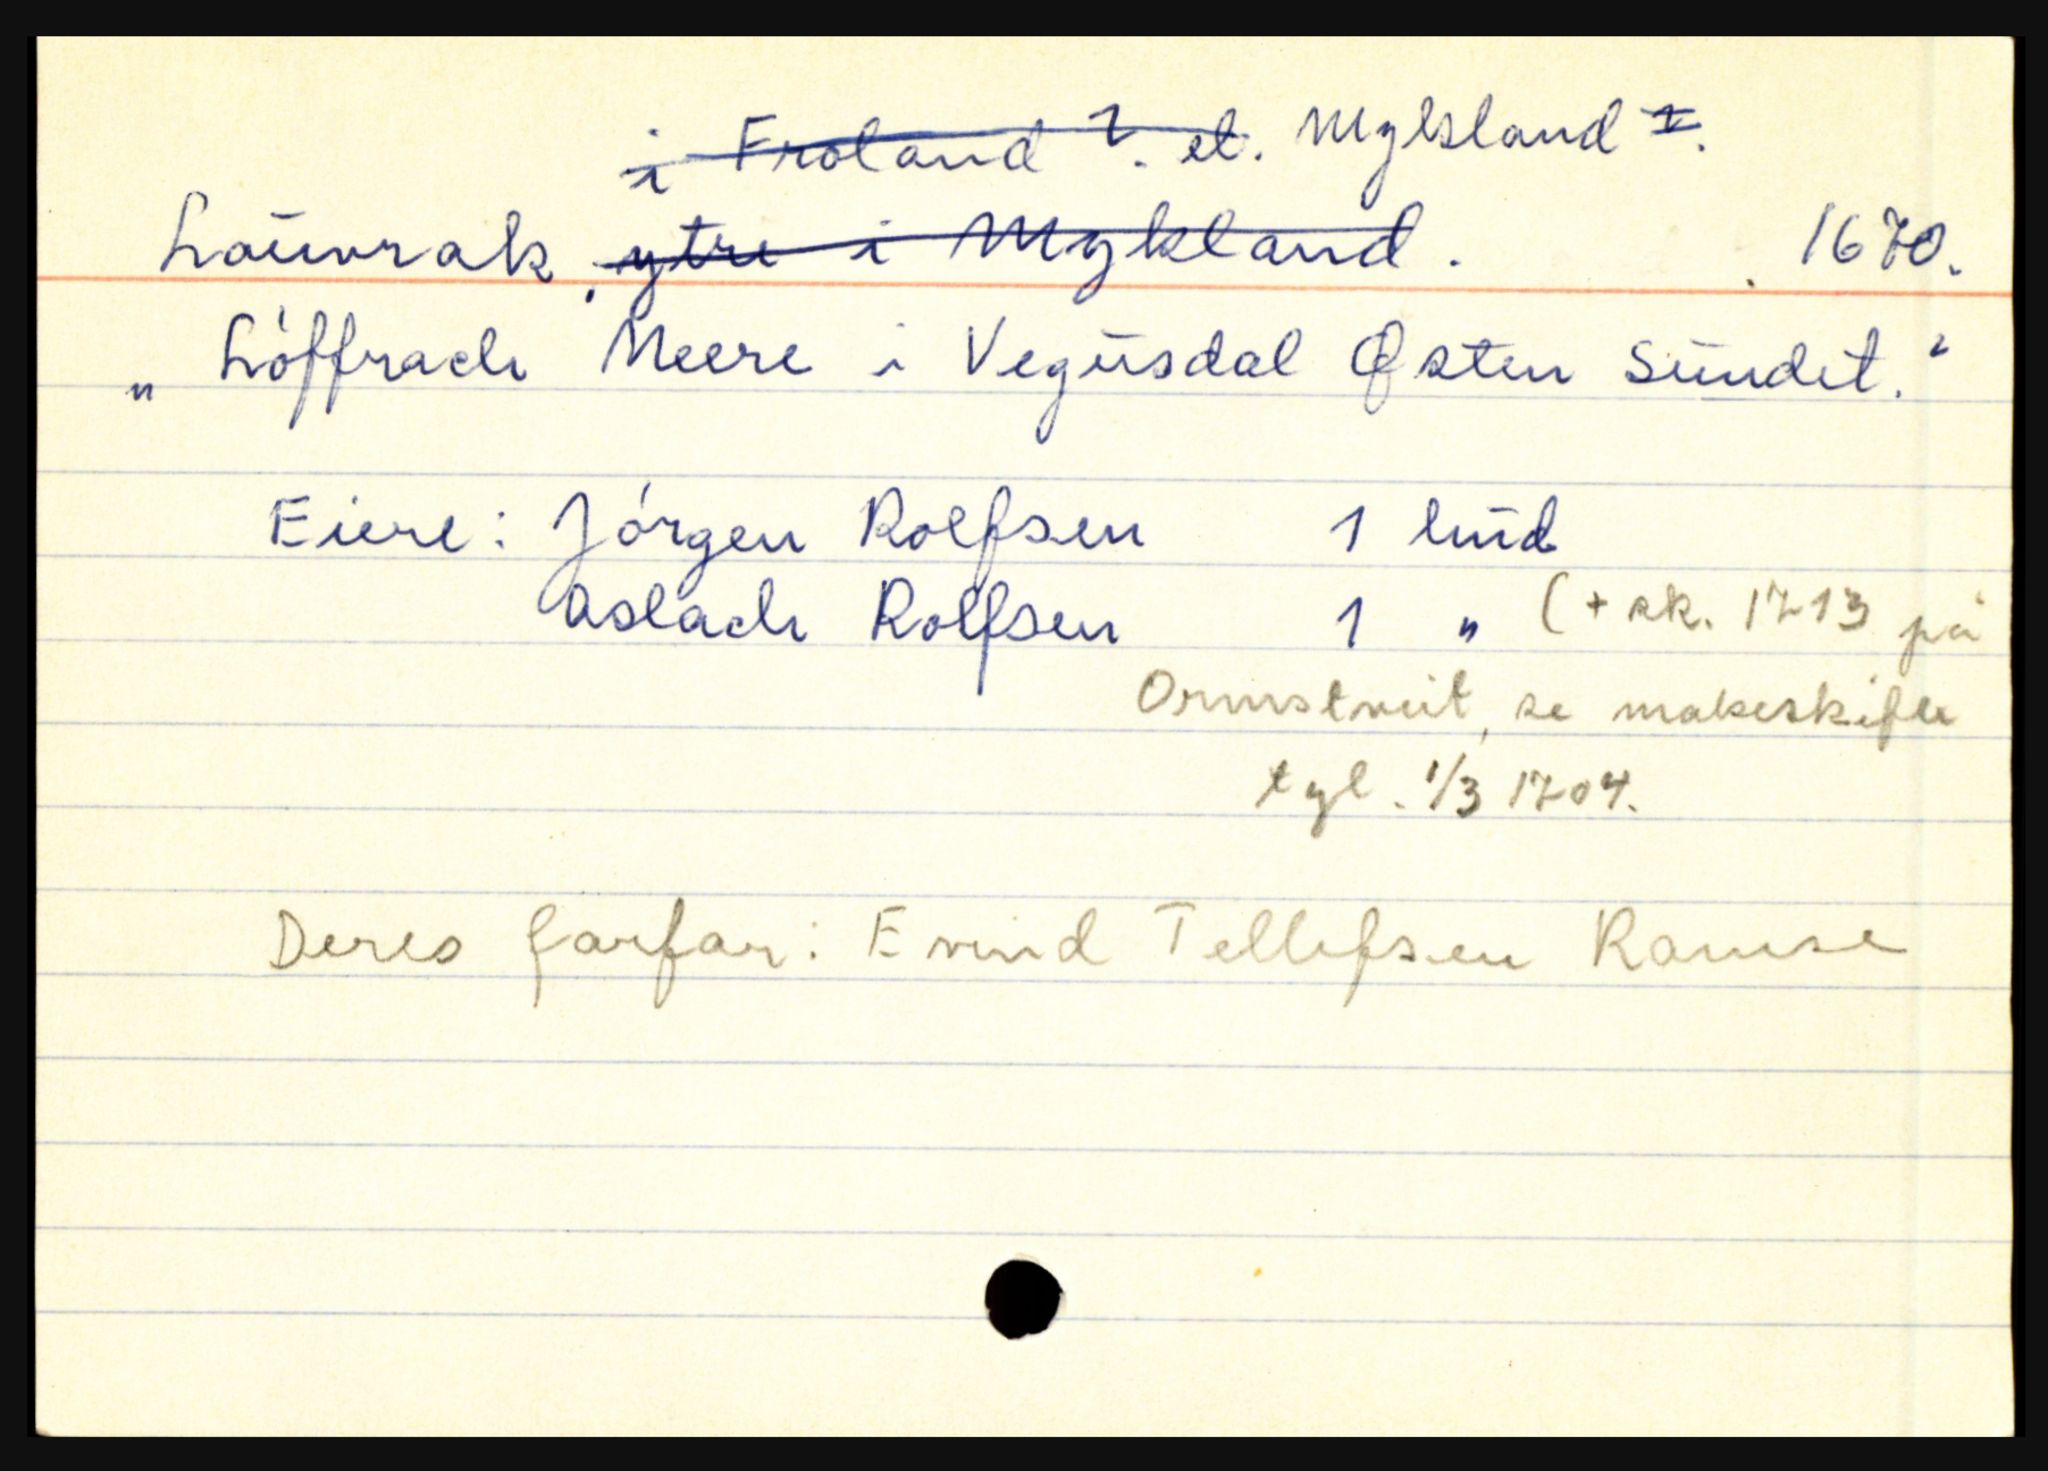 i Froland ?. el. Mykland ?.
Lauvrak, ytre i Mykland. 1670.
„ Löffrach Neere i Vegusdal Østen Sundet."
Eiere: Jörgen Rolfsen 1 hud
Aslach Rolfsen 1 „ (+ sk. 1713 på
Ormstveit, se makeskifte
tgl. 1/3 1704.
Deres farfar: Evind Tellefsen Ramse